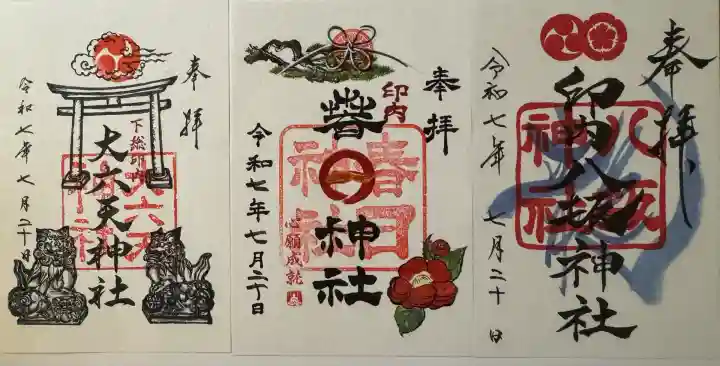 奉拝
下総印内
大六天神社
大六天
神社
令和七年七月二十日
奉拝
印内
春日神社
春日
神社
心願成就
令和七年七月二十日
奉拝
印内八坂神社
八坂
神社
令和七年 七月二十日